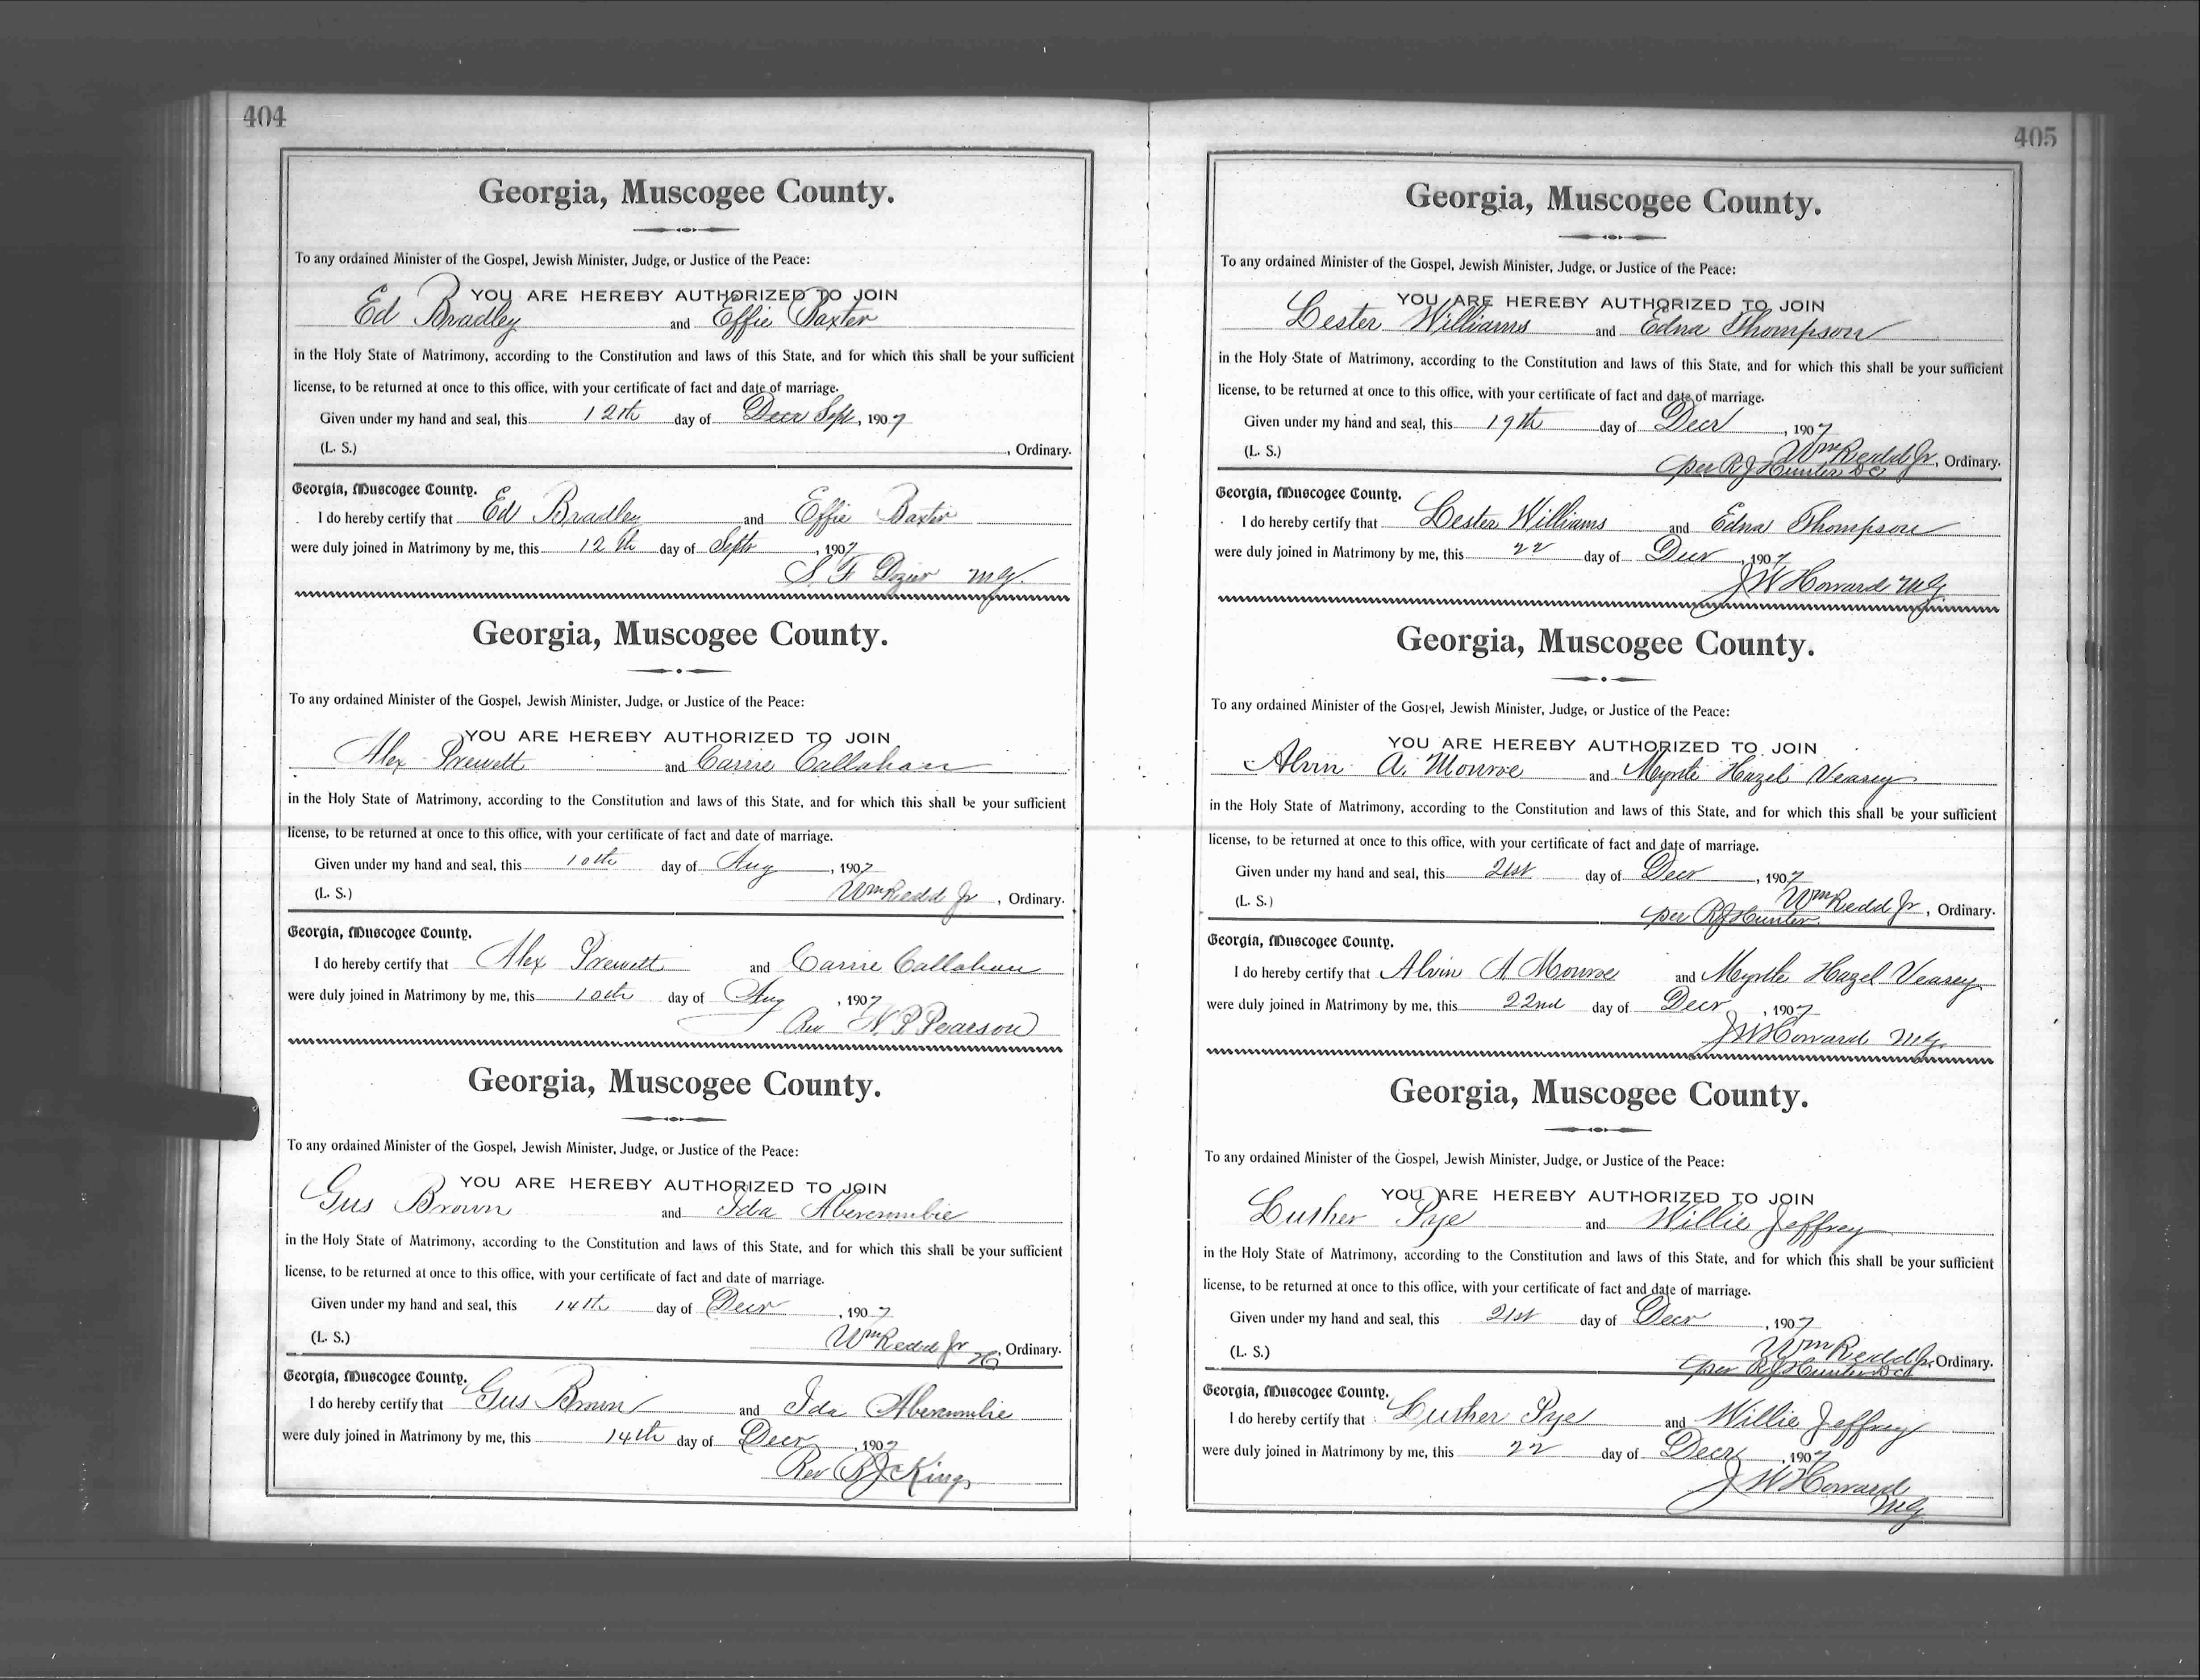 404
Georgia, Muscogee County.
To any ordained Minister of the Gospel, Jewish Minister, Judge, or Justice of the Peace:
YOU ARE HEREBY AUTHORIZED TO JOIN
Ed Bradley and Effie Baxter
in the Holy State of Matrimony, according to the Constitution and laws of this State, and for which this shall be your sufficient
license, to be returned at once to this office, with your certificate of fact and date of marriage.
Given under my hand and seal, this 12th day of Decr Sept, 1907
(L. S.) , Ordinary.
Georgia, Muscogee County.
I do hereby certify that Ed Bradley and Effie Baxter
were duly joined in Matrimony by me, this 12th day of Sept , 1907
S. F. Dozier M.G.
Georgia, Muscogee County.
To any ordained Minister of the Gospel, Jewish Minister, Judge, or Justice of the Peace:
YOU ARE HEREBY AUTHORIZED TO JOIN
Alex Prewett and Carrie Callahan
in the Holy State of Matrimony, according to the Constitution and laws of this State, and for which this shall be your sufficient
license, to be returned at once to this office, with your certificate of fact and date of marriage.
Given under my hand and seal, this 10th day of Aug , 1907
(L. S.) Wm Redd Jr , Ordinary.
Georgia, Muscogee County.
I do hereby certify that Alex Prewett and Carrie Callahan
were duly joined in Matrimony by me, this 10th day of Aug , 1907
Rev N. P. Pearson
Georgia, Muscogee County.
To any ordained Minister of the Gospel, Jewish Minister, Judge, or Justice of the Peace:
YOU ARE HEREBY AUTHORIZED TO JOIN
Gus Brown and Ida Abercrombie
in the Holy State of Matrimony, according to the Constitution and laws of this State, and for which this shall be your sufficient
license, to be returned at once to this office, with your certificate of fact and date of marriage.
Given under my hand and seal, this 14th day of Decr , 1907
(L. S.) Wm Redd Jr , Ordinary.
Georgia, Muscogee County.
I do hereby certify that Gus Brown and Ida Abercrombie
were duly joined in Matrimony by me, this 14th day of Decr , 1907
Rev King
405
Georgia, Muscogee County.
To any ordained Minister of the Gospel, Jewish Minister, Judge, or Justice of the Peace:
YOU ARE HEREBY AUTHORIZED TO JOIN
Lester Williams and Edna Thompson
in the Holy State of Matrimony, according to the Constitution and laws of this State, and for which this shall be your sufficient
license, to be returned at once to this office, with your certificate of fact and date of marriage.
Given under my hand and seal, this 19th day of Decr , 1907
(L. S.) Wm Redd Jr, Ordinary.
per R J Hunter DC
Georgia, Muscogee County.
I do hereby certify that Lester Williams and Edna Thompson
were duly joined in Matrimony by me, this 22 day of Decr , 1907
J W Howard M.G.
Georgia, Muscogee County.
To any ordained Minister of the Gospel, Jewish Minister, Judge, or Justice of the Peace:
YOU ARE HEREBY AUTHORIZED TO JOIN
Alvin A. Monroe and Myrtle Hazel Veasey
in the Holy State of Matrimony, according to the Constitution and laws of this State, and for which this shall be your sufficient
license, to be returned at once to this office, with your certificate of fact and date of marriage.
Given under my hand and seal, this 21st day of Decr , 1907
(L. S.) Wm Redd Jr , Ordinary.
per R J Hunter
Georgia, Muscogee County.
I do hereby certify that Alvin A Monroe and Myrtle Hazel Veasey
were duly joined in Matrimony by me, this 22nd day of Decr , 1907
J W Howard M.G.
Georgia, Muscogee County.
To any ordained Minister of the Gospel, Jewish Minister, Judge, or Justice of the Peace:
YOU ARE HEREBY AUTHORIZED TO JOIN
Luther Pye and Willie Jeffrey
in the Holy State of Matrimony, according to the Constitution and laws of this State, and for which this shall be your sufficient
license, to be returned at once to this office, with your certificate of fact and date of marriage.
Given under my hand and seal, this 21st day of Decr , 1907
(L. S.) Wm Redd Jr Ordinary.
per R J Hunter DC
Georgia, Muscogee County.
I do hereby certify that Luther Pye and Willie Jeffrey
were duly joined in Matrimony by me, this 22 day of Decr , 1907
J W Howard
MG